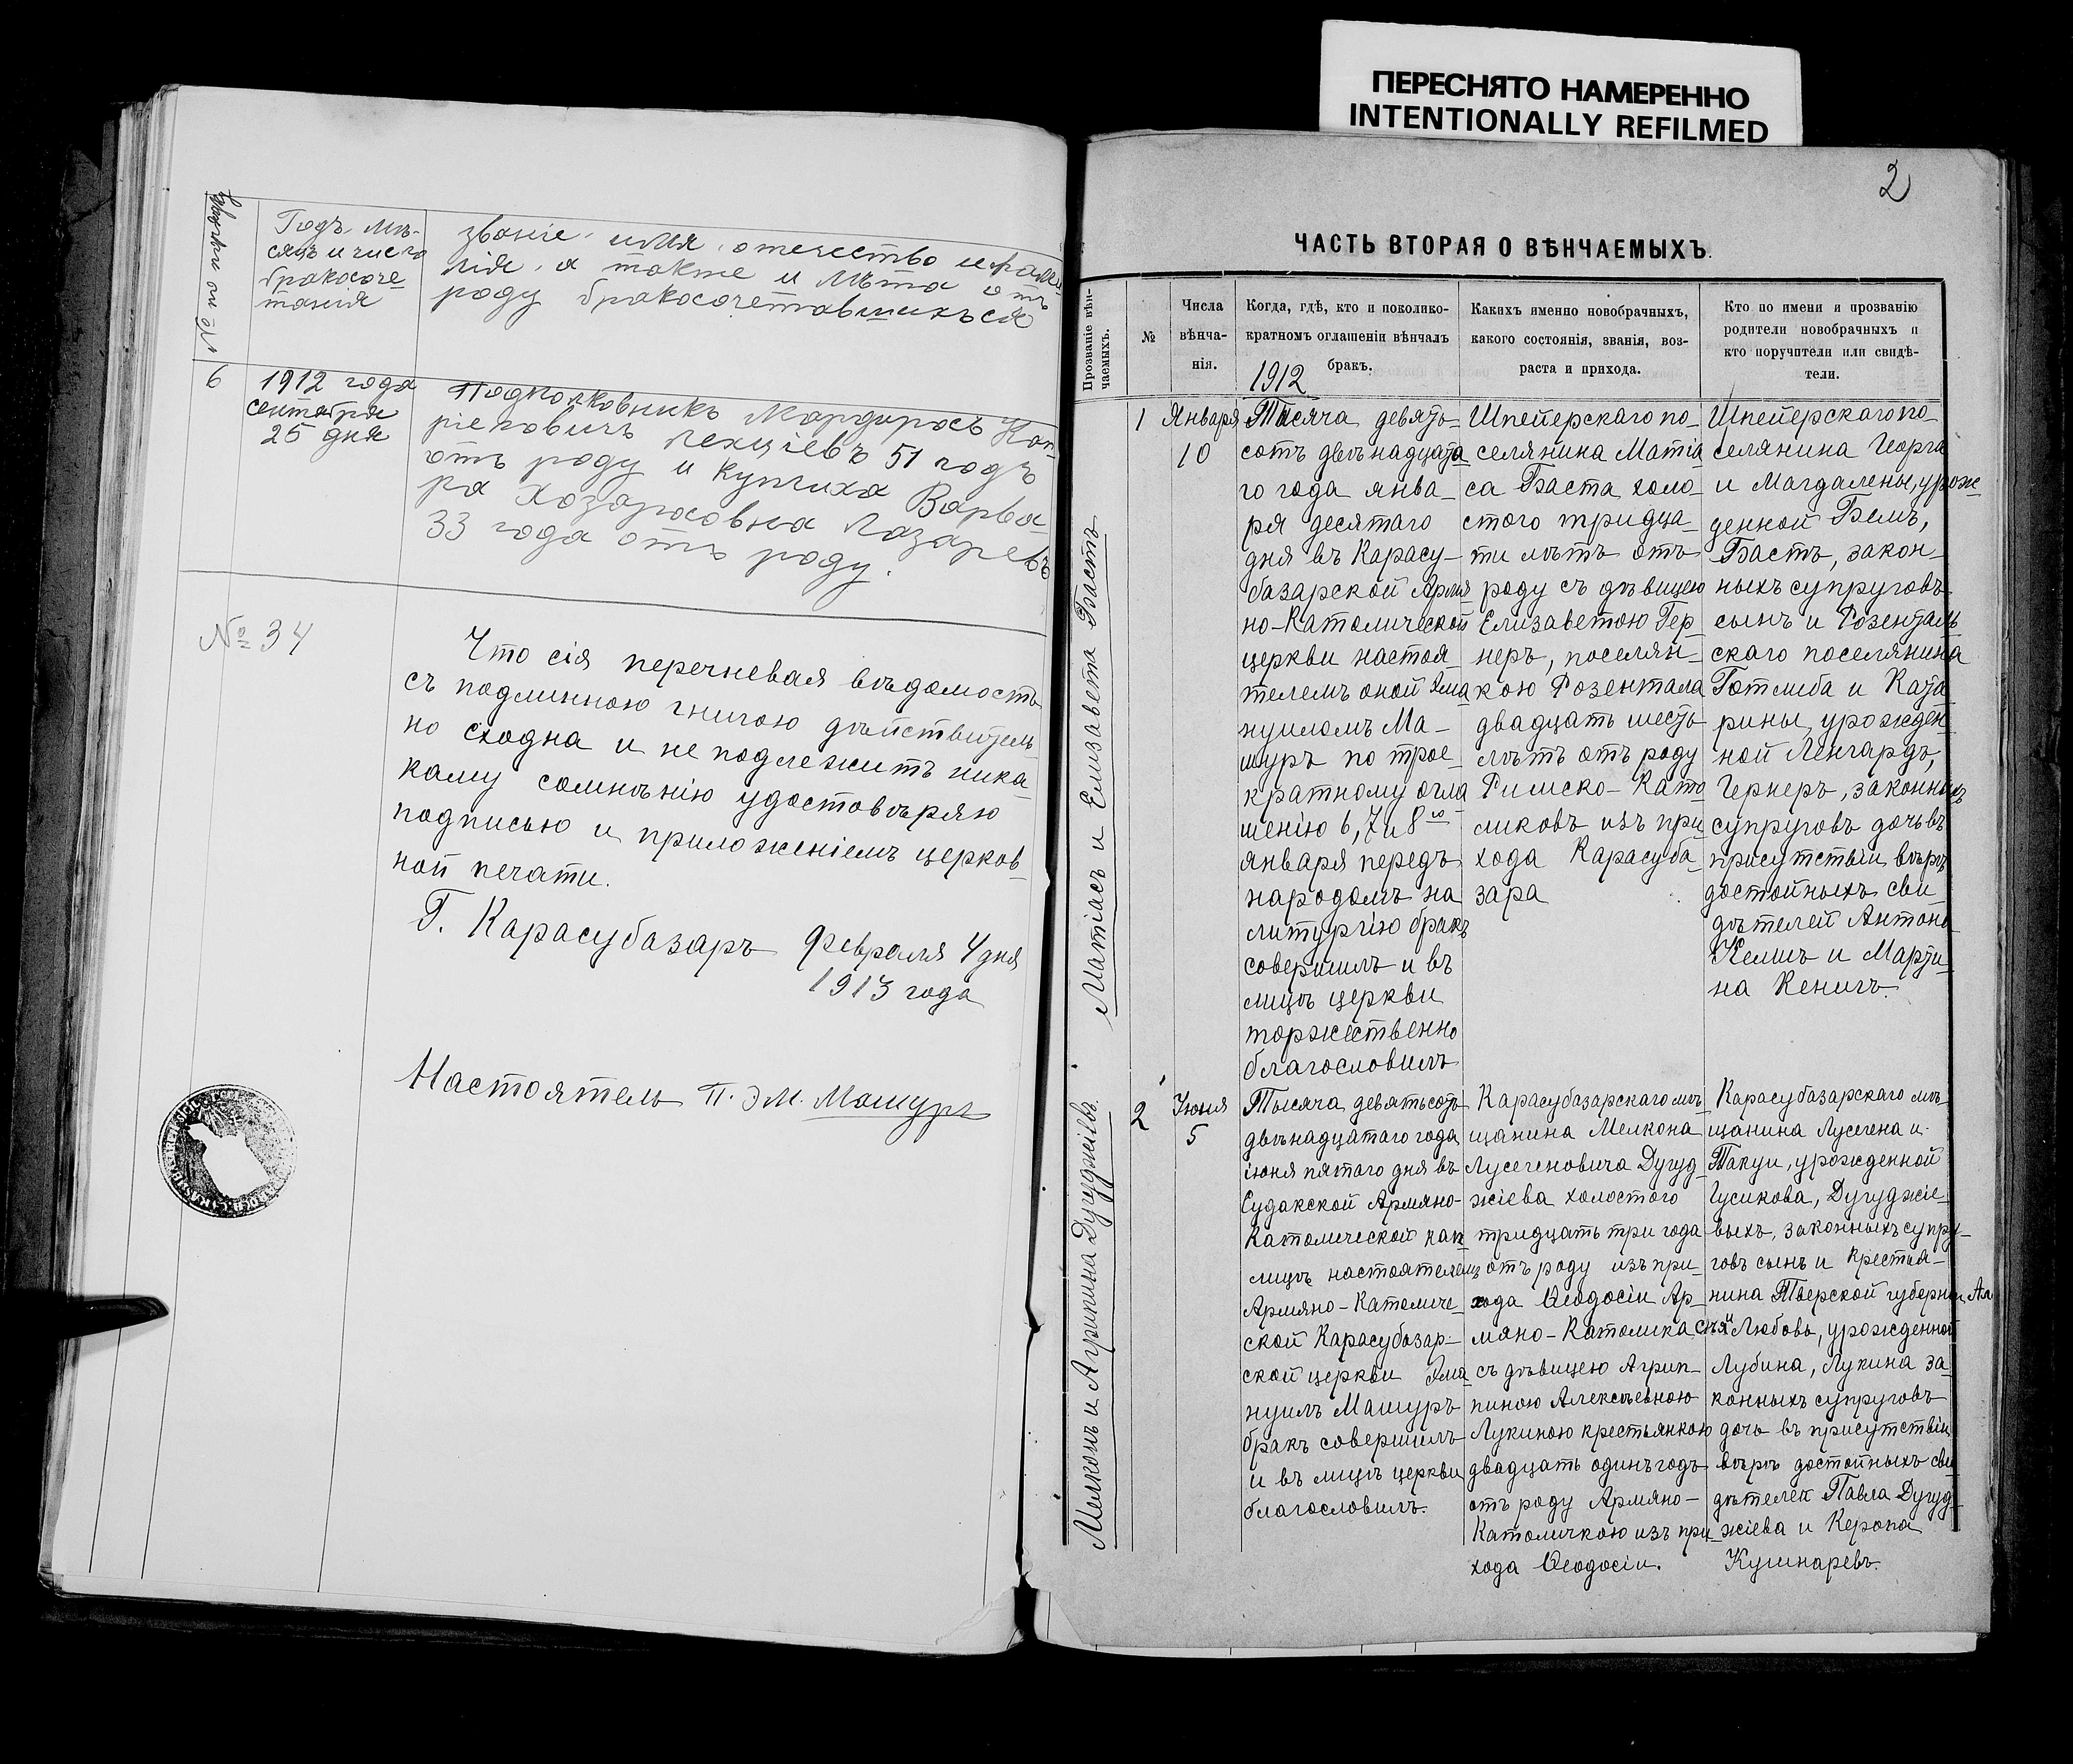 ПЕРЕСНЯТО НАМЕРЕННО
INTENTIONALLY REFILMED
Годъ мѣ-
сяцъ и число
бракосоче-
танія
званіе, имя, отечество и фами-
лія, а также и лѣта отъ
роду бракосочетавшихъся
6
1912 года
сентября
25 дня
Подполковникъ Мардиросъ
51 годъ
отъ роду и купчиха Варва-
ра Хозаросовна Лазаревъ
33 года отъ роду.
№ 34
Что сія перечневая вѣдомость
съ подлинною книгою дѣйствитель-
но сходна и не подлежитъ ника-
кому сомнѣнію удостовѣряю
подписью и приложеніемъ церков-
ной печати.
Г. Карасубазаръ Февраля 4 дня
1913 года
Настоятель П. Эм. Машуръ
2
ЧАСТЬ ВТОРАЯ О ВѢНЧАЕМЫХЪ.
Прозваніе вѣн-
чаемыхъ.
№
Числа
вѣнча-
нія.
Когда, гдѣ, кто и поколико-
кратномъ оглашеніи вѣнчалъ
бракъ.
1912
Какихъ именно новобрачныхъ,
какого состоянія, званія, воз-
раста и прихода.
Кто по имени и прозванію
родители новобрачныхъ и
кто поручители или свидѣ-
тели.
Матіасъ и Елизавета Бастъ
1
Января
10
Тысяча девять-
сотъ двѣнадцата-
го года янва-
ря десятаго
дня въ Карасу-
базарской Армя-
но-Католической
церкви настоя-
телемъ оной Эма-
нуиломъ Ма-
шуръ по трое-
кратному огла-
шенію 6, 7 и 8го
января передъ
народомъ на
литургію бракъ
совершилъ и въ
лицѣ церкви
торжественно
благословилъ
Шпейерскаго по-
селянина Матіа-
са Баста холо-
стого тридца-
ти лѣтъ отъ
роду съ дѣвицею
Елизаветою Гер-
неръ, поселян-
кою Розентала
двадцать шесть
лѣтъ отъ роду
Римско-Като-
ликовъ изъ при-
хода Карасуба-
зара
Шпейерскаго по-
селянина Георга
и Магдалены, урож-
денной Бемъ,
Бастъ, закон-
ныхъ супруговъ
сынъ и Розенталь-
скаго поселянина
Готлиба и Ката-
рины, урожден-
ной Ленгардъ,
Гернеръ, законныхъ
супруговъ дочь въ
присутствіи вѣро-
достойныхъ сви-
дѣтелей Антона
Келшъ и Марти-
на Кенигъ.
Мелконъ и Агрипина Дугуджіевъ.
2
Іюня
5
Тысяча девятьсотъ
двѣнадцатаго года
іюня пятаго дня въ
Судакской Армяно-
Католической кап-
лицѣ настоятелемъ
Армяно-Католиче-
ской Карасубазар-
ской церкви Эма-
нуилъ Машуръ
бракъ совершилъ
и въ лицѣ церкви
благословилъ.
Карасубазарскаго мѣ-
щанина Мелкона
Лусегеновича Дугуд-
жіева холостого
тридцать три года
отъ роду изъ при-
хода Ѳеодосіи Ар-
мяно-Католика
съ дѣвицею Агрип-
пиною Алексѣевною
Лукиною крестьянкою
двадцать одинъ годъ
отъ роду Армяно-
Католичкою изъ при-
хода Ѳеодосіи.
Карасубазарскаго мѣ-
щанина Лусегена и
Такуи, урожденной
Гусикова, Дугуджіе-
выхъ, законныхъ супру-
говъ сынъ и крестья-
нина Тверской губерніи Але-
ксѣя и Любовь, урожденной
Лубина, Лукина за-
конныхъ супруговъ
дочь въ присутствіи
вѣродостойныхъ сви-
дѣтелей Павла Дугуд-
жіева и Керопа
Кушнаревъ.